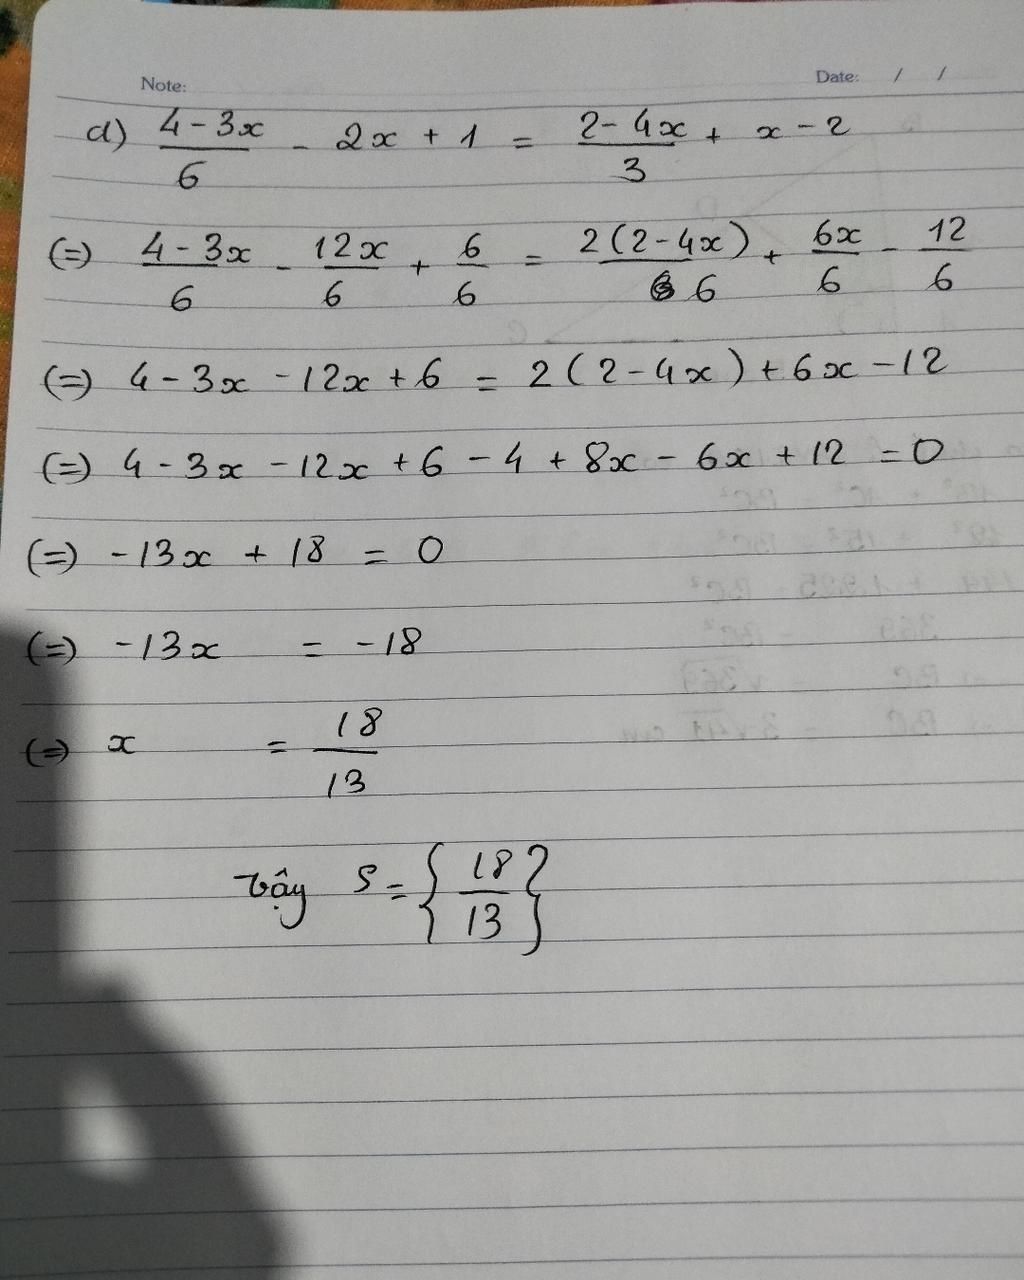 Note: Date: / /
d) (4-3x)/6 - 2x + 1 = (2-4x)/3 + x - 2
(=) (4-3x)/6 - 12x/6 + 6/6 = 2(2-4x)/6 + 6x/6 - 12/6
(=) 4-3x - 12x + 6 = 2(2-4x) + 6x - 12
(=) 4 - 3x - 12x + 6 - 4 + 8x - 6x + 12 = 0
(=) -13x + 18 = 0
(=) -13x = -18
(=) x = 18/13
Vậy S = {18/13}